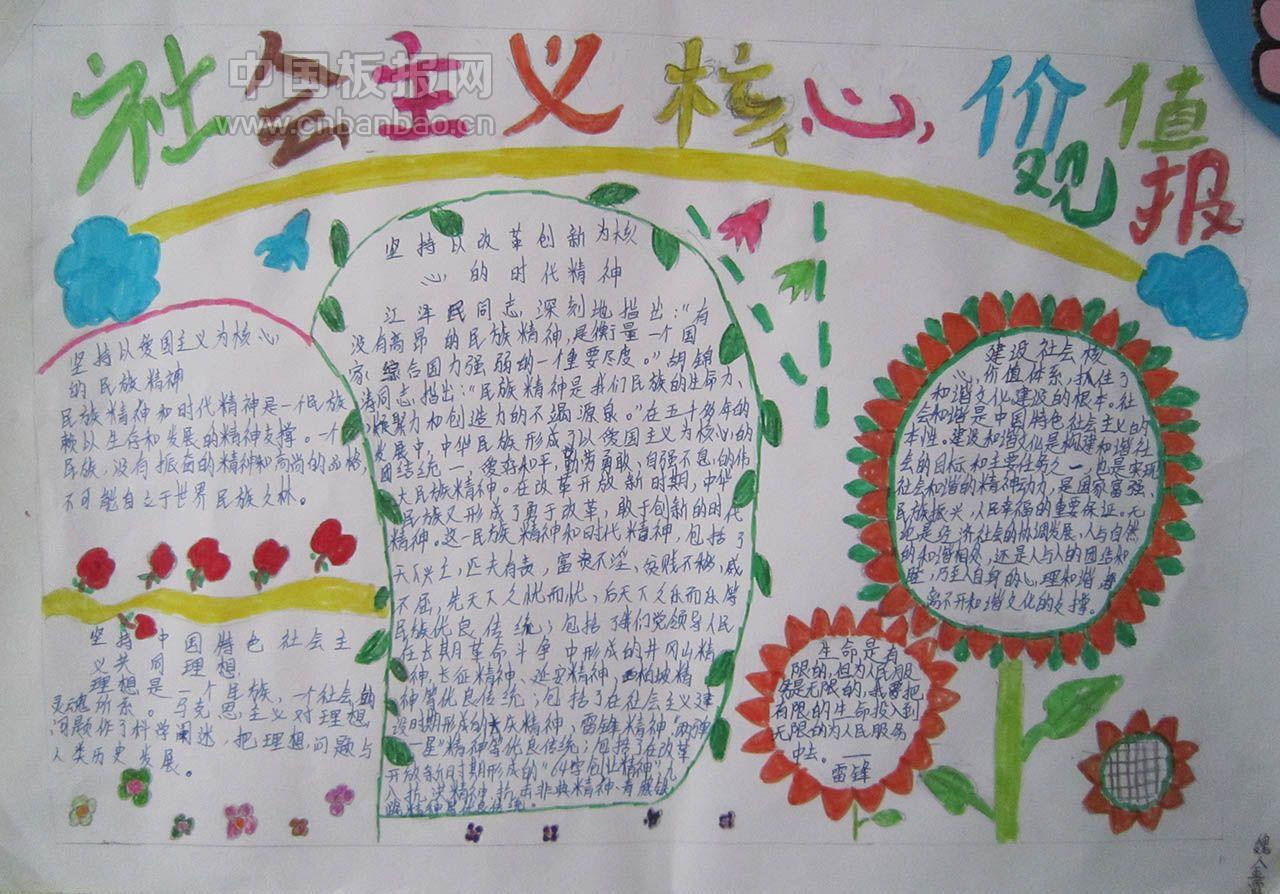 社会主义核心价值
观报
中国板报网
www.cnbanbao.cn
坚持以爱国主义为核心
的民族精神
民族精神和时代精神是一个民族
赖以生存和发展的精神支撑。一个
民族,没有振奋的精神和高尚的品格,
不可能自立于世界民族之林。
坚持中国特色社会主
义共同理想
理想是一个民族,一个社会的
灵魂所系。马克思主义对理想
问题作了科学阐述,把理想问题与
人类历史发展。
坚持以改革创新为核
心的时代精神
江泽民同志深刻地指出:"有
没有高昂的民族精神,是衡量一个国
家综合国力强弱的一个重要尺度。"胡锦
涛同志指出:"民族精神是我们民族的生命力、
凝聚力和创造力的不竭源泉。"在五千多年的
发展中,中华民族形成了以爱国主义为核心的
团结统一,爱好和平,勤劳勇敢、自强不息的伟
大民族精神。在改革开放新时期,中华
民族又形成了勇于改革,敢于创新的时代
精神。这一民族精神和时代精神,包括了
天下兴亡,匹夫有责,富贵不淫、贫贱不移,威
不屈,先天下之忧而忧,后天下之乐而乐等
民族优良传统;包括了我们党领导人民
在长期革命斗争中形成的井冈山精
神,长征精神、延安精神、西柏坡精
神等优良传统;包括了在社会主义建
设时期形成的大庆精神,雷锋精神"两弹
一星"精神等优良传统;包括了在改革
开放新时期形成的"64字创业精神"九
八抗洪精神,抗击非典精神、青藏铁
路精神等优良传统。
建设社会核
心价值体系,抓住了
和谐文化建设的根本。社
会和谐是中国特色社会主义的
本性。建设和谐文化是构建和谐社
会的目标和主要任务之一,也是实现
社会和谐的精神动力,是国家富强、
民族振兴,人民幸福的重要保证。无
论是经济社会的协调发展,人与自然
的和谐相处,还是人与人的团结和
睦,乃至人自身的心理和谐,都
离不开和谐文化的支撑。
生命是有
限的,但为人民服
务是无限的,我要把
有限的生命投入到
无限的为人民服务
中去。——
雷锋